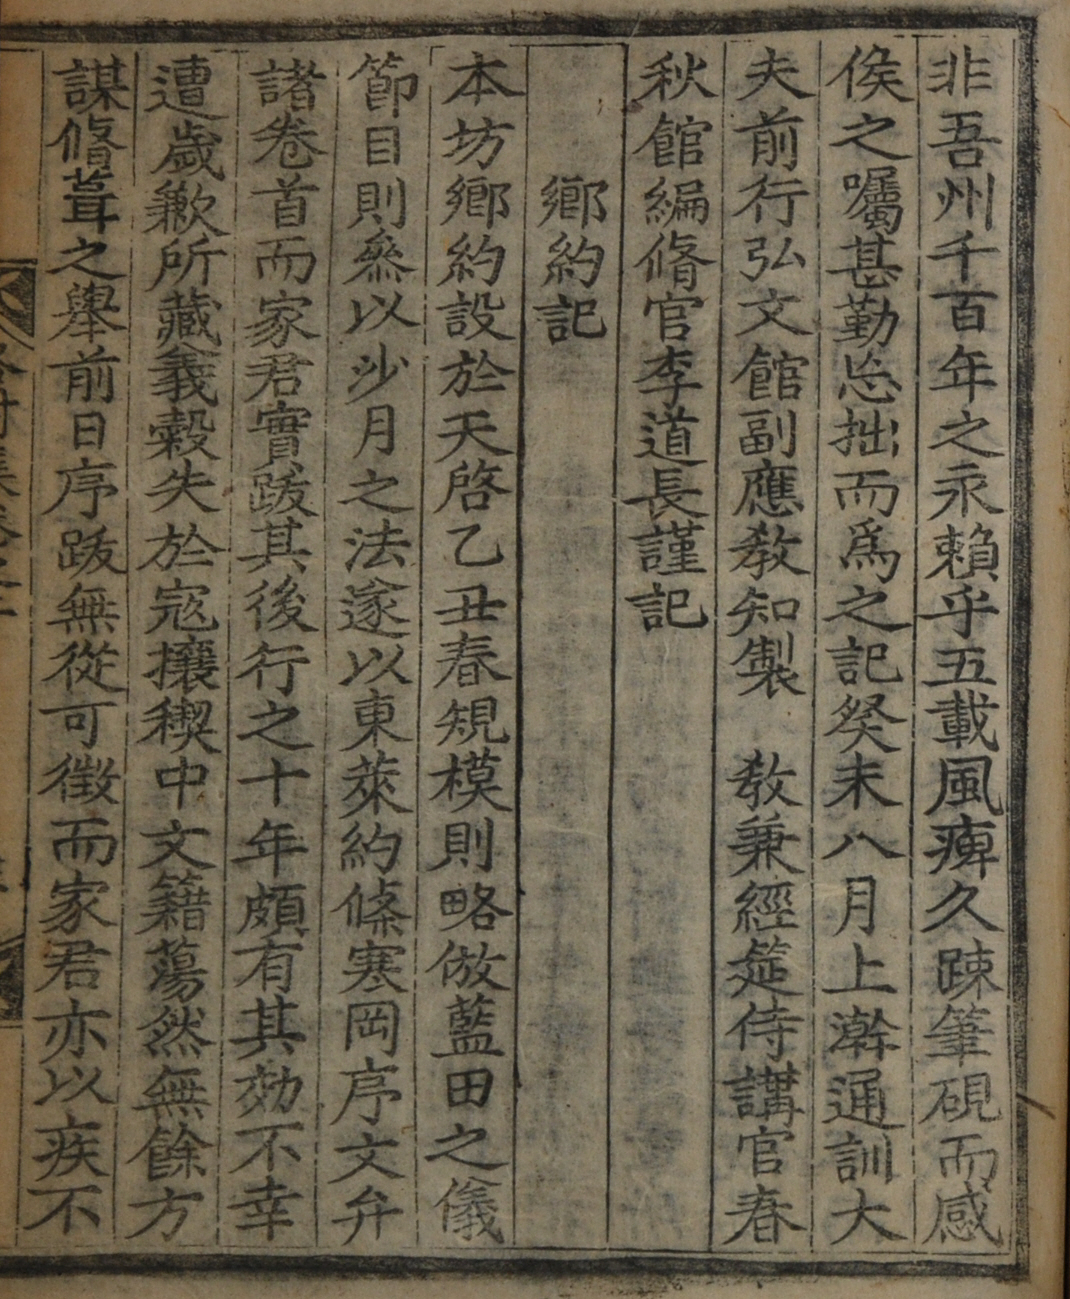 非吾州千百年之永賴乎五載風痺久踈筆硯而感
侯之囑甚勤忘拙而爲之記癸未八月上澣通訓大
夫前行弘文館副應敎知製 敎兼經筵侍講官春
秋館編脩官李道長謹記
鄕約記
本坊鄕約設於天啓乙丑春䂓模則略倣藍田之儀
節目則叅以沙月之法遂以東萊約條寒岡序文弁
諸卷首而家君實跋其後行之十年頗有其効不幸
遭歲歉所藏義穀失於宼攘稧中文籍蕩然無餘方
謀脩葺之擧前日序跋無從可徵而家君亦以疾不